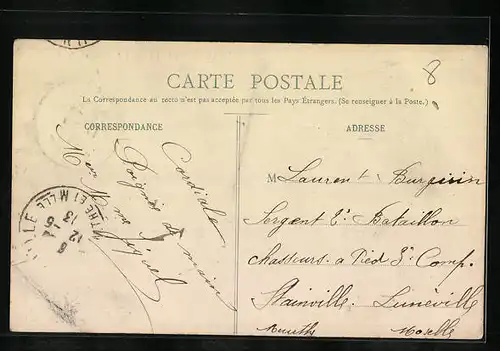 8
CARTE POSTALE
La Correspondance au recto n'est pas acceptée par tous les Pays Étrangers. (Se renseigner à la Poste.)
CORRESPONDANCE
ADRESSE
Cordiale
Poignée de main
Mr Mme
M Laurent
Sergent 2e Bataillon
chasseurs a Pied 3e Comp.
Stainville. Lunéville
Meurthe Moselle